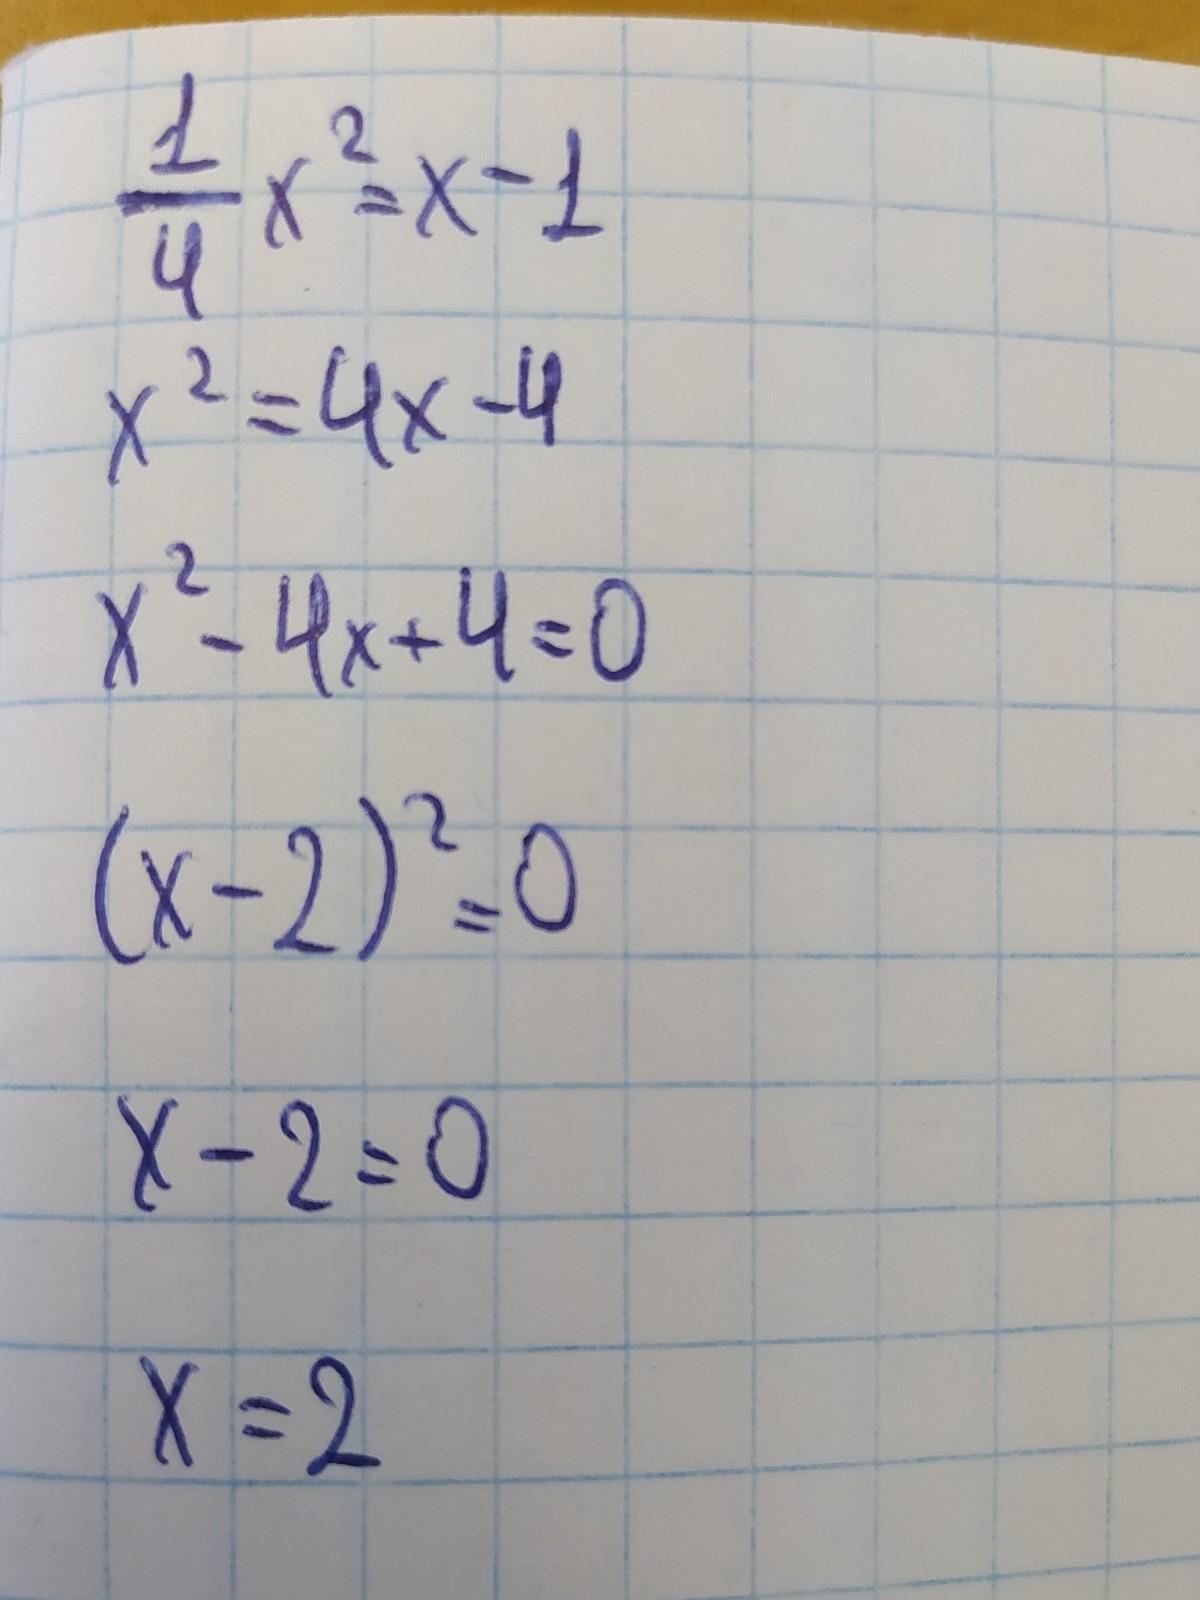 1/4 x² = x - 1
x² = 4x - 4
x² - 4x + 4 = 0
(x - 2)² = 0
x - 2 = 0
x = 2